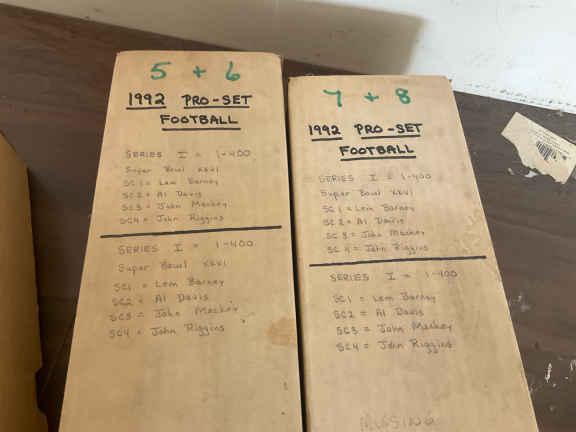 5 + 6
1992 PRO-SET
FOOTBALL
SERIES I = 1-400
Super Bowl XXVI
SC1 = Lem Barney
SC2 = Al Davis
SC3 = John Mackey
SC4 = John Riggins
SERIES I = 1-400
Super Bowl XXVI
SC1 = Lem Barney
SC2 = Al Davis
SC3 = John Mackey
SC4 = John Riggins
7 + 8
1992 PRO-SET
FOOTBALL
SERIES I = 1-400
Super Bowl XXVI
SC1 = Lem Barney
SC2 = Al Davis
SC3 = John Mackey
SC4 = John Riggins
SERIES I = 1-400
SC1 = Lem Barney
SC2 = Al Davis
SC3 = John Mackey
SC4 = John Riggins
MISSING